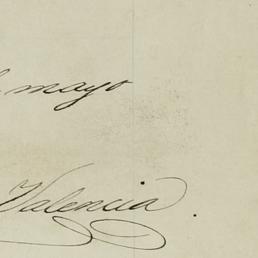 mayo
Valencia.